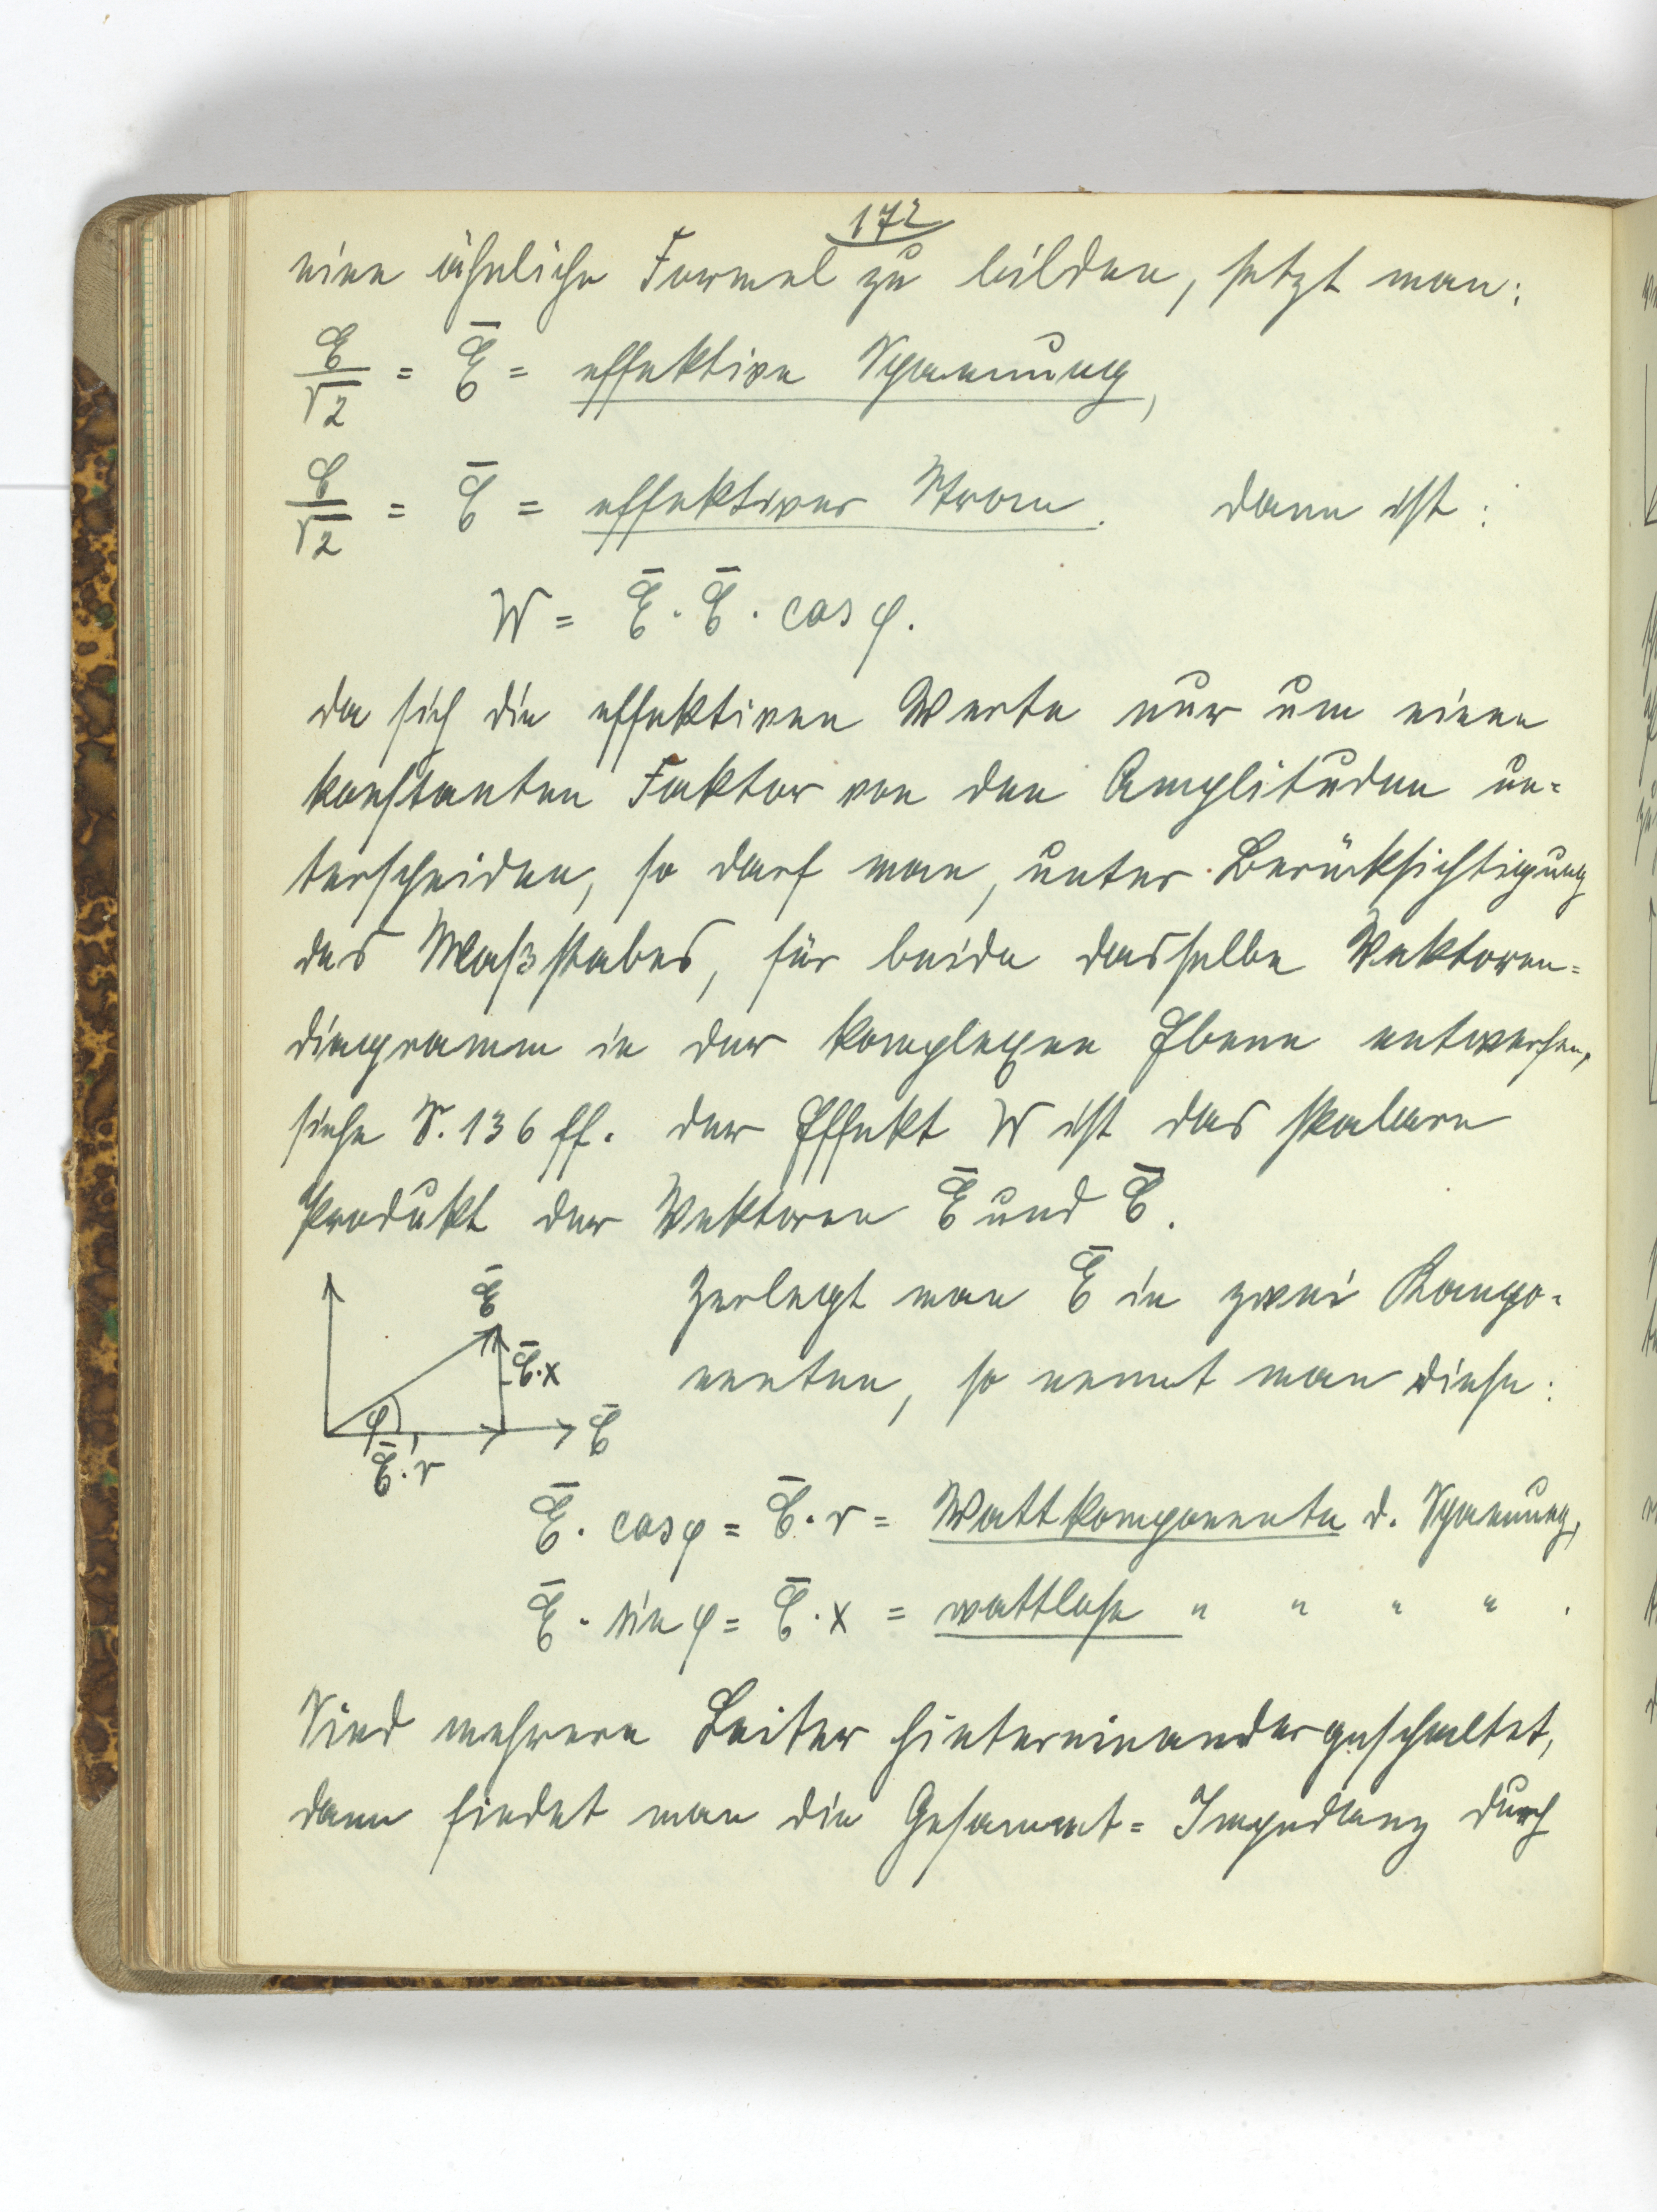 172
eine ähnliche Formel zu bilden, setzt man:
𝔈/√2 = 𝔈̄ = effektive Spannung,
ℭ/√2 = ℭ̄ = effektiver Strom. Dann ist:
W = 𝔈̄ · ℭ̄ · cos φ.
Da sich die effektiven Werte nur um einen
konstanten Faktor von den Amplituden un=
terscheiden, so darf man, unter Berücksichtigung
des Maßstabes, für beide dasselbe Vektoren=
diagramm in der komplexen Ebene entwerfen,
siehe S. 136 ff. Der Effekt W ist das skalare
Produkt der Vektoren 𝔈̄ und ℭ̄.
Zerlegt man 𝔈̄ in zwei Kompo=
nenten, so nennt man diese:
𝔈̄
ℭ̄·x
φ
ℭ̄
ℭ̄·r
𝔈̄ · cos φ = ℭ̄ · r = Wattkomponente d. Spannung,
𝔈̄ · sin φ = ℭ̄ · x = wattlose " " " " .
Sind mehrere Leiter hintereinandergeschaltet,
dann findet man die Gesammt=Impedanz durch